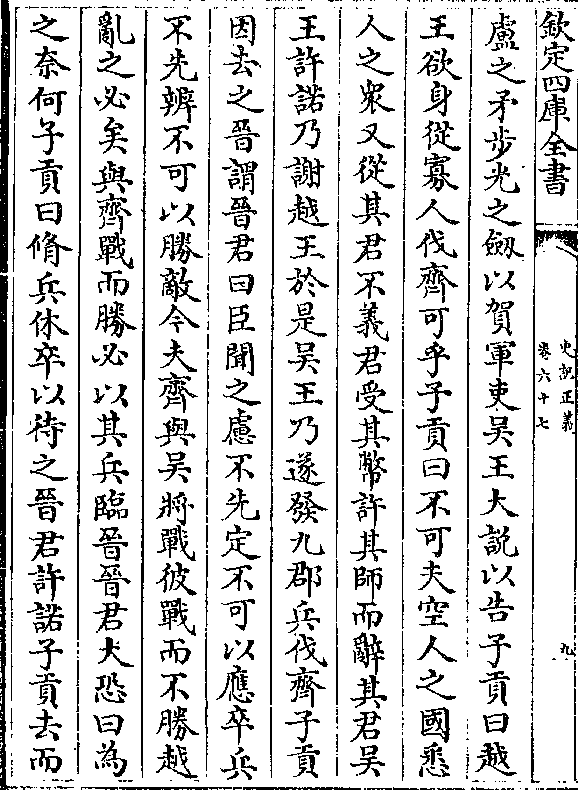 欽定四庫全書
史記正義
卷六十七
九
盧之矛步光之劒以賀軍吏吳王大說以告子貢曰越
王欲身從寡人伐齊可乎子貢曰不可夫空人之國悉
人之衆又從其君不義君受其幣許其師而辭其君吳
王許諾乃謝越王於是吳王乃遂發九郡兵伐齊子貢
因去之晉謂晉君曰臣聞之慮不先定不可以應卒兵
不先辨不可以勝敵今夫齊與吳將戰彼戰而不勝越
亂之必矣與齊戰而勝必以其兵臨晉晉君大恐曰為
之奈何子貢曰脩兵休卒以待之晉君許諾子貢去而